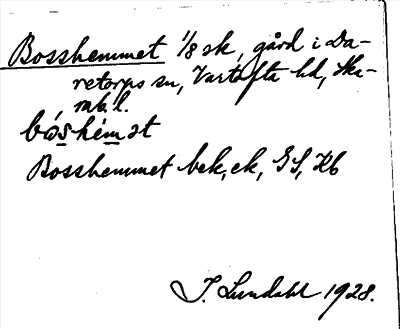 Bosshemmet 1/8 sk, gård i Da-
retorps sn, Vartofta hd, Ska-
rab. l.
bo̊s̲hém̲ət
Bosshemmet bek, ek, GS, Kb
J. Lundahl 1928.